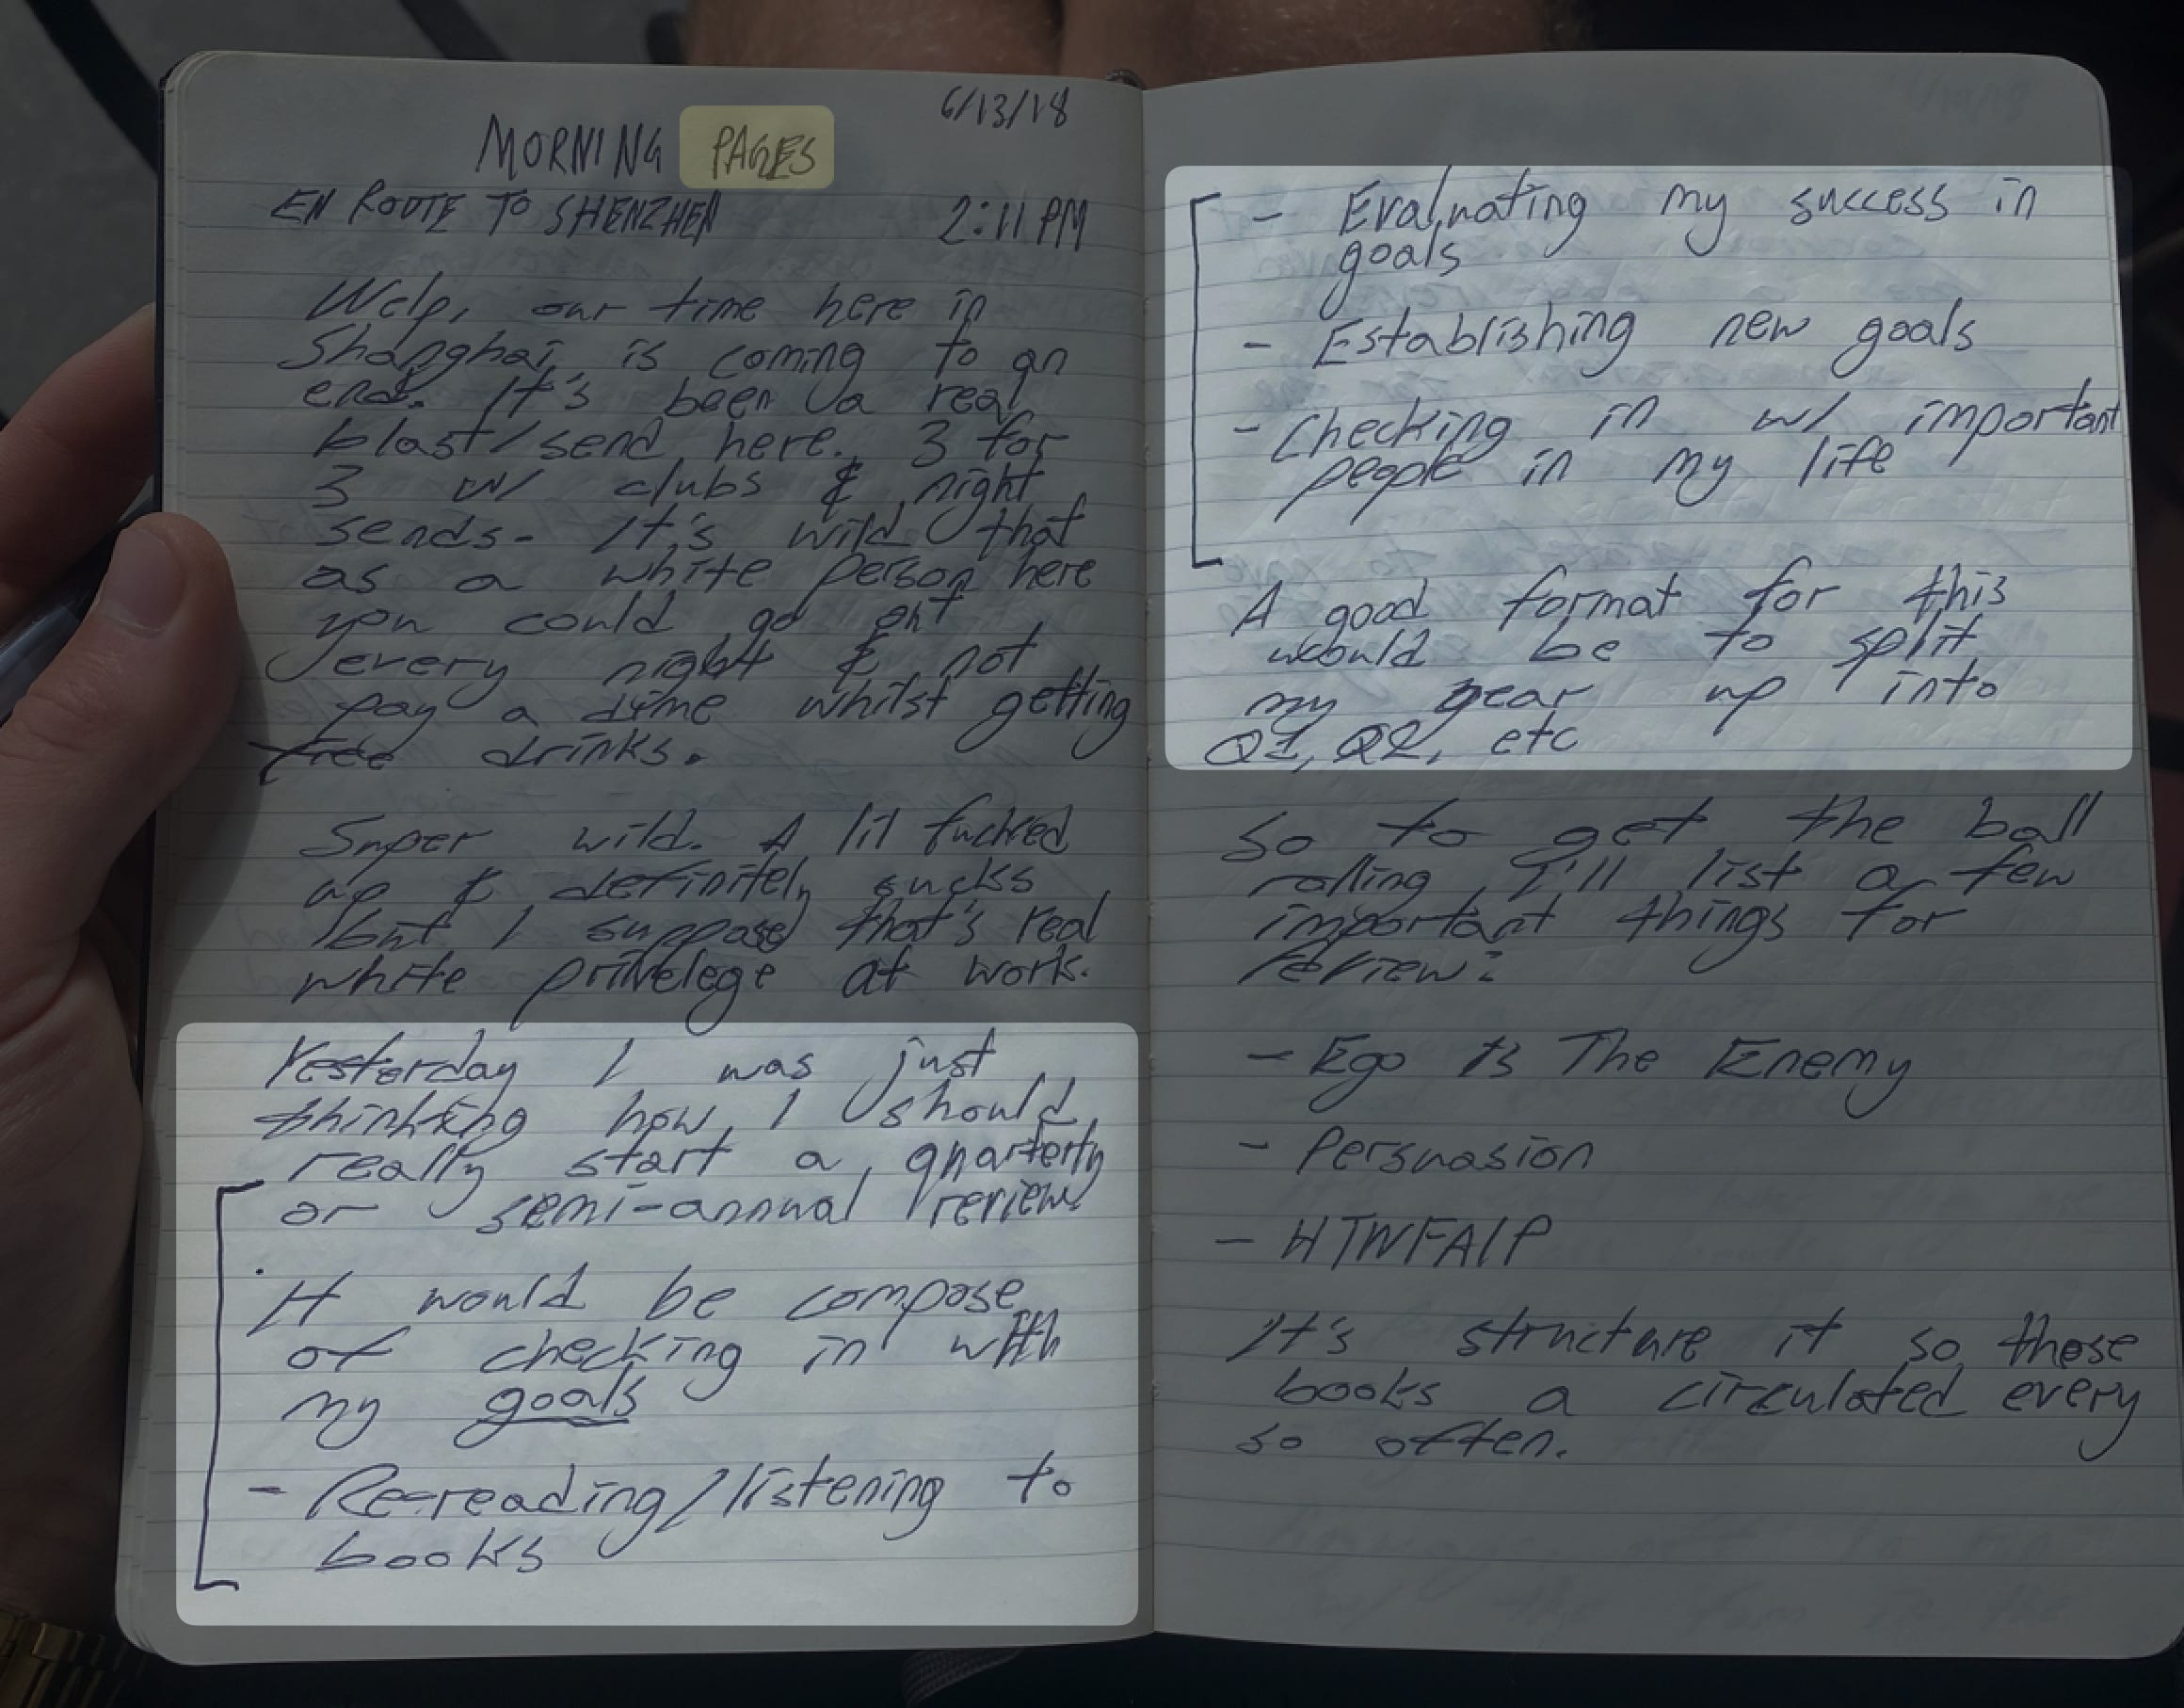 6/13/18
MORNING PAGES
EN ROUTE TO SHENZHEN 2:11 PM
Welp, our time here in
Shanghai is coming to an
end. It's been a real
blast/send here. 3 for
3 w/ clubs & night
sends. It's wild that
as a white person here
you could go out
every night & not
pay a dime whilst getting
free drinks.
Super wild. A lil fucked
up & definitely sucks
but I suppose that's real
white privelege at work.
Yesterday I was just
thinking how I should
really start a quarterly
or semi-annual review
It would be compose
of checking in with
my goals
- Re-reading/listening to
books
- Evaluating my success in
goals
- Establishing new goals
- Checking in w/ important
people in my life
A good format for this
would be to split
my year up into
Q1, Q2, etc
So to get the ball
rolling I'll list a few
important things for
review:
- Ego Is The Enemy
- Persuasion
- HTWFAIP
It's structure it so these
books a circulated every
so often.